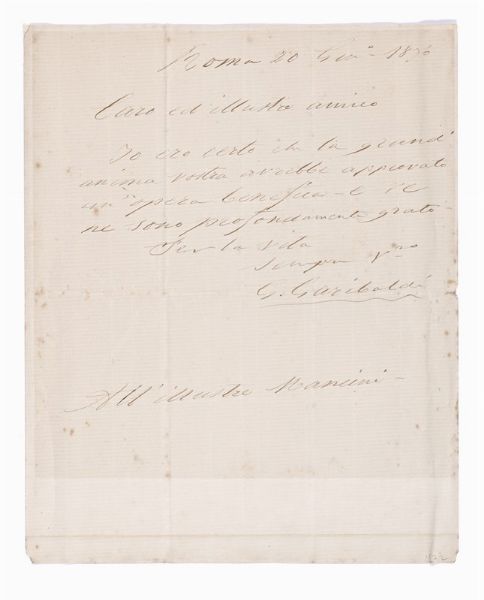 Roma 20 Gio - 1876
Caro ed illustre amico
Io ero certo che la grand'
anima vostra avrebbe approvato
un' opera benefica - e ve
ne sono profondamente grato -
Per la vita
sempre Vro
G. Garibaldi
All' illustre Mancini -